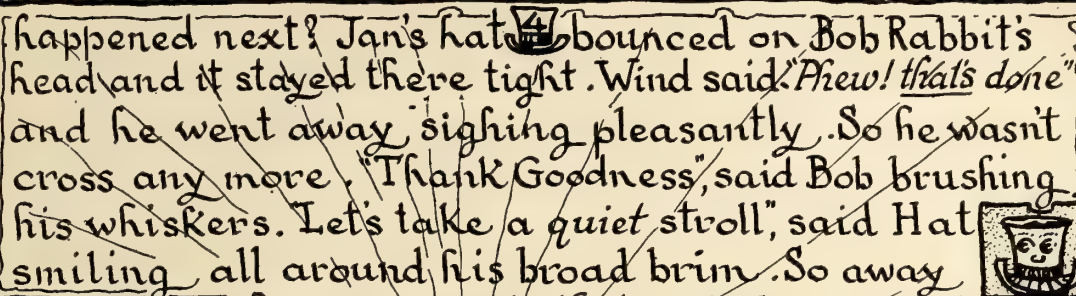 happened next? Jan's hat 4 bounced on Bob Rabbit's
head and it stayed there tight. Wind said: "Phew! that's done"
and he went away, sighing pleasantly. So he wasn't
cross any more. "Thank Goodness", said Bob brushing
his whiskers. "Let's take a quiet stroll", said Hat
smiling all around his broad brim. So away